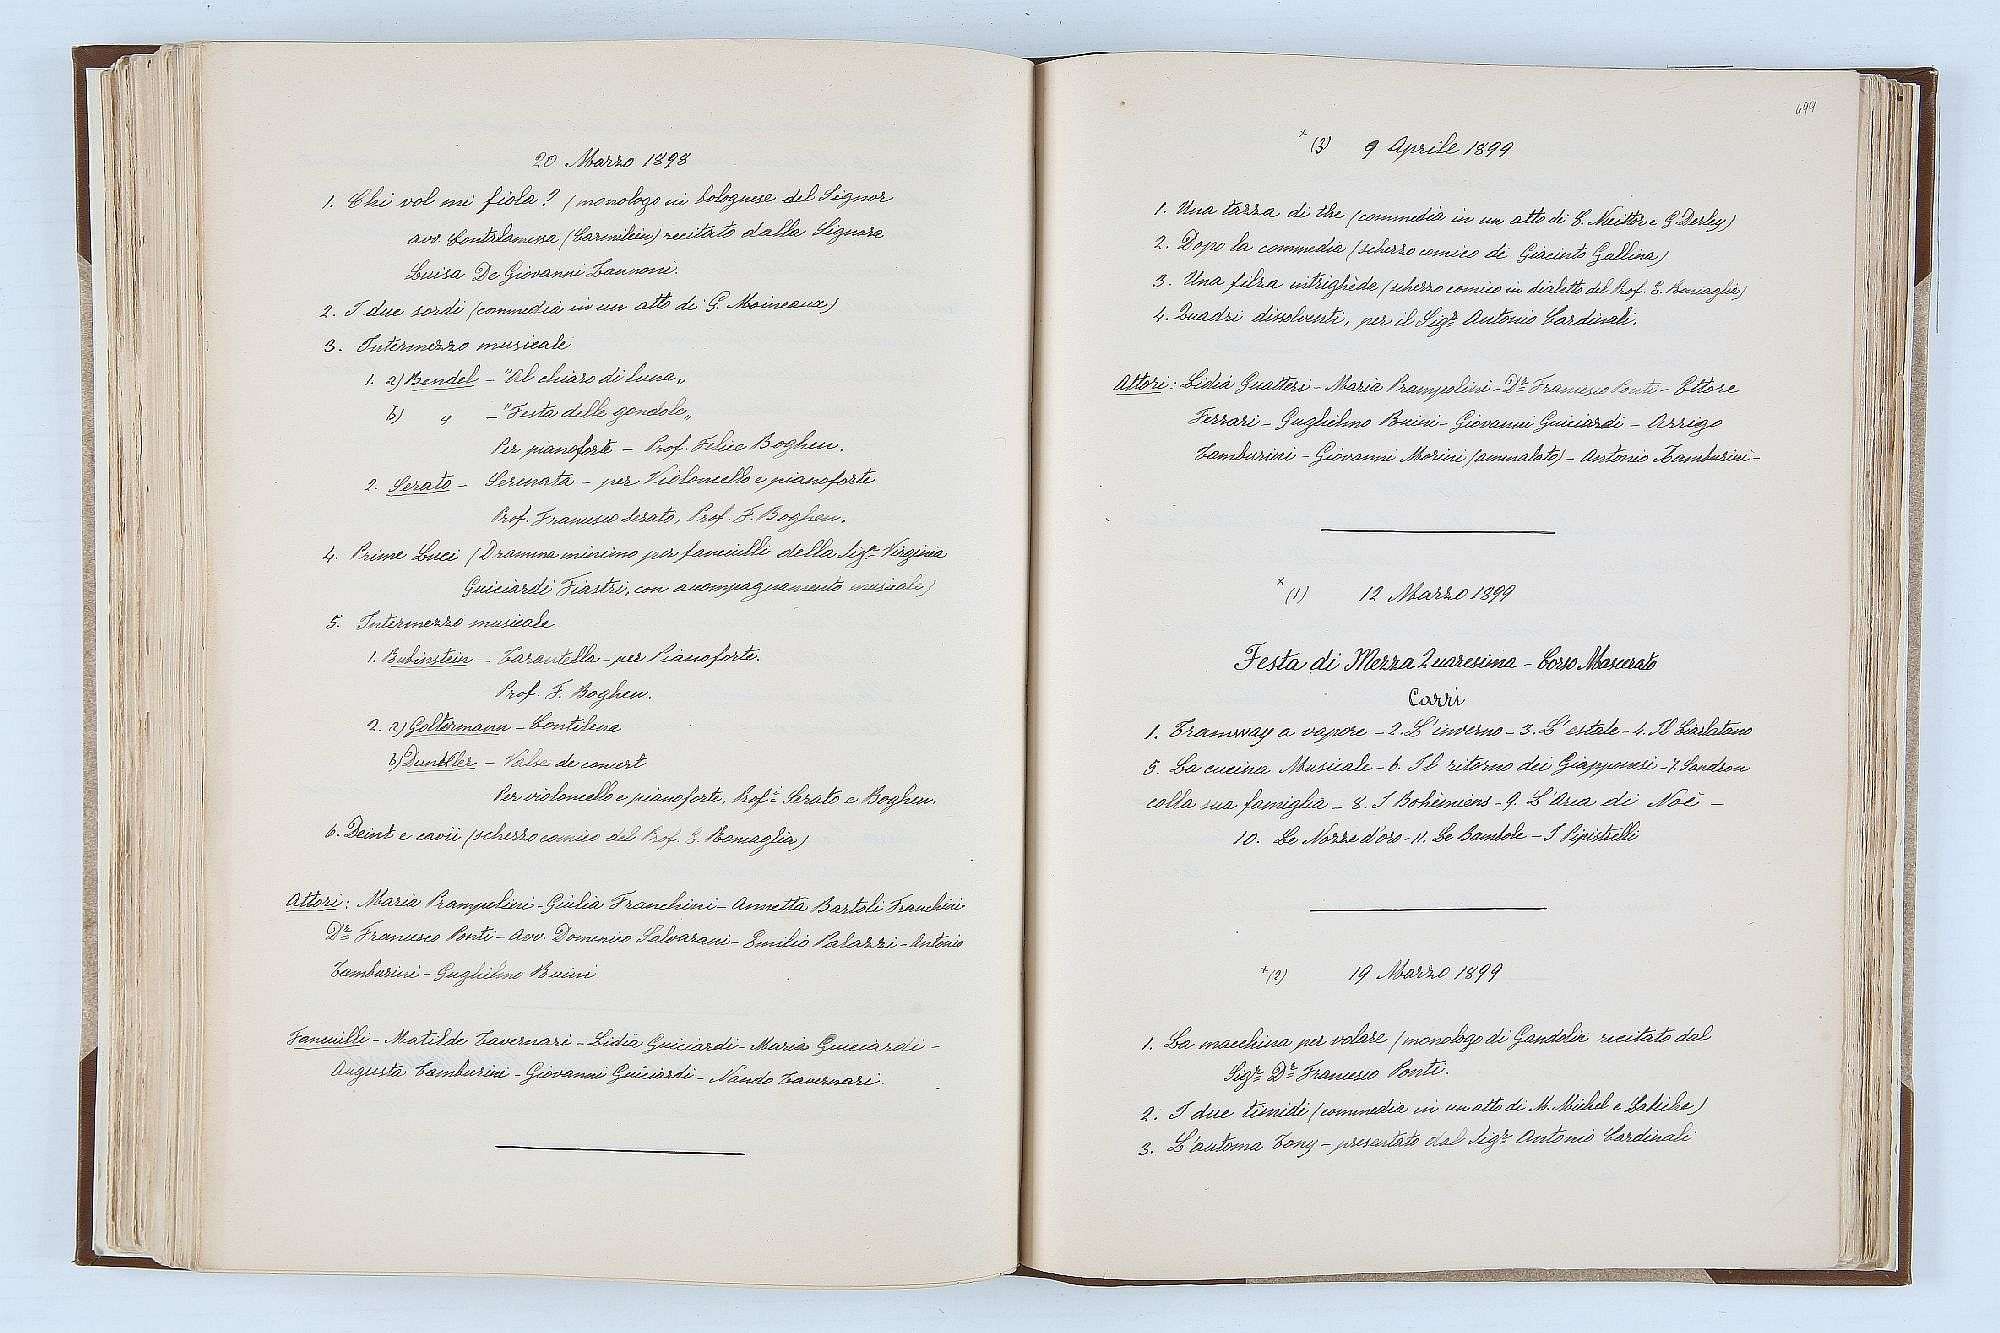 20 Marzo 1898
1. Chi vol mi fiola? (monologo in bolognese del Signor
avv. Contrlamessa (Carmilein) recitato dalla Signora
Luisa De Giovanni Zannoni.
2. I due sordi (commedia in un atto di G. Moineaux)
3. Intermezzo musicale
1. a) Bendel - "Al chiaro di luna„
b) " - "Festa delle gondole„
Per pianoforte - Prof. Felice Boghen.
2. Serato - Serenata - per Violoncello e pianoforte
Prof. Francesco Serato, Prof. F. Boghen.
4. Prime Luci (Dramma minimo per fanciulli della Sigra Virginia
Guiciardi Fiastri, con accompagnamento musicale)
5. Intermezzo musicale
1. Rubinstein - Tarantella - per Pianoforte.
Prof. F. Boghen.
2. a) Goltermann - Cantilena
b) Dunkler - Valse de concert
Per violoncello e pianoforte, Profri Serato e Boghen.
6. Deint e cavii (scherzo comico del Prof. E. Romaglia)
Attori: Maria Prampolini - Giulia Franchini - Annetta Bartoli Franchini
Dr Francesco Ponti - Avv. Domenico Salvarani - Emilio Palazzi - Antonio
Tamburini - Guglielmo Buini
Fanciulli - Matilde Tavernari - Lidia Guiciardi - Maria Guicciardi -
Augusta Tamburini - Giovanni Guiciardi - Nando Tavernari.
699
* (3) 9 Aprile 1899
1. Una tazza di the (commedia in un atto di C. Nuitter e G. Derley)
2. Dopo la commedia (scherzo comico di Giacinto Gallina)
3. Una filza intrighède (scherzo comico in dialetto del Prof. E. Romaglia)
4. Quadri dissolventi, per il Sigr Antonio Cardinali.
Attori: Lidia Guatteri - Maria Prampolini - Dr Francesco Ponti - Ettore
Ferrari - Guglielmo Buini - Giovanni Guiciardi - Arrigo
Tamburini - Giovanni Morini (ammalato) - Antonio Tamburini -
* (1) 12 Marzo 1899
Festa di Mezza Quaresima - Corso Mascerato
Carri
1. Tramway a vapore - 2. L'inverno - 3. L'estate - 4. Il Ciarlatano
5. La cucina Musicale - 6. Il ritorno dei Giapponesi - 7. Sandron
colla sua famiglia - 8. I Bohèmiens - 9. L'Arca di Noè -
10. Le Nozze d'oro - 11. Le Bambole - I Pipistrelli
* (2) 19 Marzo 1899
1. La macchina per volare (monologo di Gandolin recitato dal
Sigr Dr Francesco Ponti.
2. I due timidi (commedia in un atto di M. Michel e Labiche)
3. L'automa Tony - presentato dal Sigr Antonio Cardinali